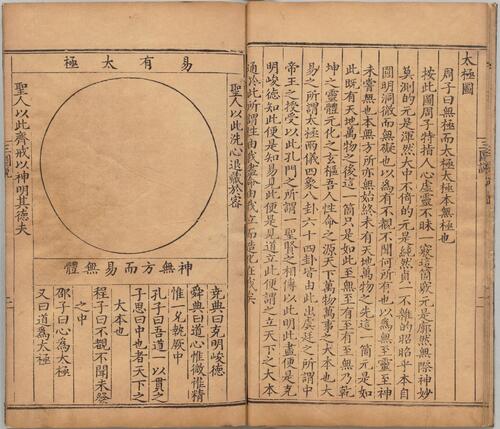 太極圖
周子曰無極而太極太極本無極也
按此圖周子特指人心虛靈不昧
元是廓然無際神妙
莫測的元是渾然大中不倚的元是純然貞一不雜的昭昭乎本自
圓明洞徹而無礙也以為有不覩不聞何所有也以為無至靈至神
未嘗無也本無方所亦無始終未有天地萬物之先這一箇元是如
此既有天地萬物之後這一箇只是如此至無至有至有至無乃乾
坤之靈體元化之玄樞吾人性命之源天下萬物萬事之大本也大
易之所謂太極兩儀四象八卦六十四卦皆由此出虞廷之所謂中
帝王之授受以此孔門之所謂一聖賢之相傳以此明此盡便是克
明峻德知此便是知易見此便是見道立此便謂之立天下之大本
通於此所謂性由我盡命由我立而造化在我矣
易有太極
聖人以此洗心退藏於密
聖人以此齊戒以神明其德夫
神無方而易無體
堯典曰克明峻德
舜典曰道心惟微惟精
惟一允執厥中
孔子曰吾道一以貫之
子思曰中也者天下之
大本也
程子曰不覩不聞未發
之中
邵子曰心為太極
又曰道為太極